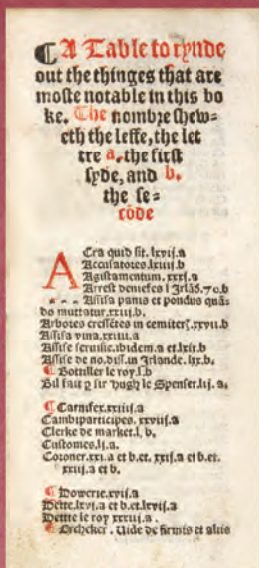 ¶ A Table to fynde
out the thinges that are
moste notable in this bo
ke. The nombre shew=
eth the leffe, the let
tre a. the first
syde, and b.
the se=
cōde
ACra quid sit. lxvij.a
Accusatores. lxiiij.b
Agistamentum. xxxj.a
Arrest deniefes i Irlād. 70.b
Assisa panis et pondus quā-
do muttatur. xxiij.b.
Arbores cressētes in cemiterꝭ. xxvij.b
Assisa vina. xxiiij.a
Assise seruise. ibidem.a et lxij.b
Assise de no. diss. in Irlande. lxx.b.
¶ Bottiller le roy. l.b
Bil fait p sir Hugh le Spenser. lij.a.
¶ Carnifex. xxiiij.a
Cambiparticipes. xxviij.a
Clerke de market. l. b.
Customes. lj.a.
Coroner. xxj.a et b. et. xxij.a et b. et.
xxiij.a et b.
¶ Dowerie. xvij.a
Dette. lxvj.a et b. et. lxvij.a
Dettte le roy xxxiij.a.
¶ Excheker. Uide de firmis et aliis